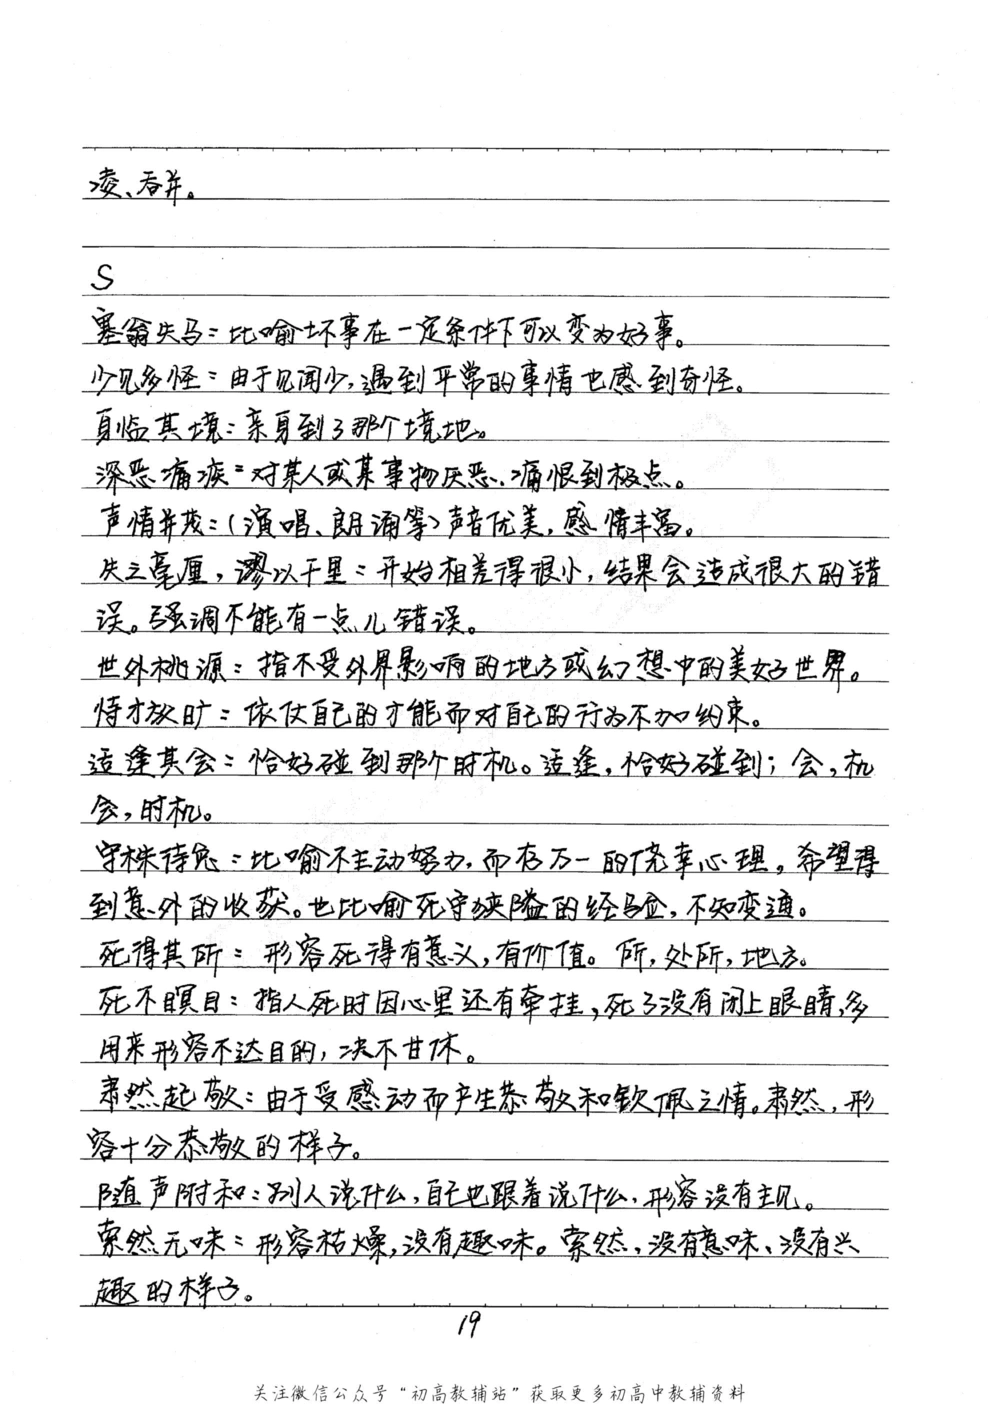 凌、吞并。
S
塞翁失马：比喻坏事在一定条件下可以变为好事。
少见多怪：由于见闻少，遇到平常的事情也感到奇怪。
身临其境：亲身到了那个境地。
深恶痛疾：对某人或某事物厌恶、痛恨到极点。
声情并茂：（演唱、朗诵等）声音优美，感情丰富。
失之毫厘，谬以千里：开始相差得很小，结果会造成很大的错
误。强调不能有一点儿错误。
世外桃源：指不受外界影响的地方或幻想中的美好世界。
恃才放旷：依仗自己的才能而对自己的行为不加约束。
适逢其会：恰好碰到那个时机。适逢，恰好碰到；会，机
会，时机。
守株待兔：比喻不主动努力，而存万一的侥幸心理，希望得
到意外的收获。也比喻死守狭隘的经验，不知变通。
死得其所：形容死得有意义，有价值。所，处所，地方。
死不瞑目：指人死时因心里还有牵挂，死了没有闭上眼睛，多
用来形容不达目的，决不甘休。
肃然起敬：由于受感动而产生恭敬和钦佩之情。肃然，形
容十分恭敬的样子。
随声附和：别人说什么，自己也跟着说什么，形容没有主见。
索然无味：形容枯燥，没有趣味。索然，没有意味、没有兴
趣的样子。
19
关注微信公众号“初高教辅站”获取更多初高中教辅资料